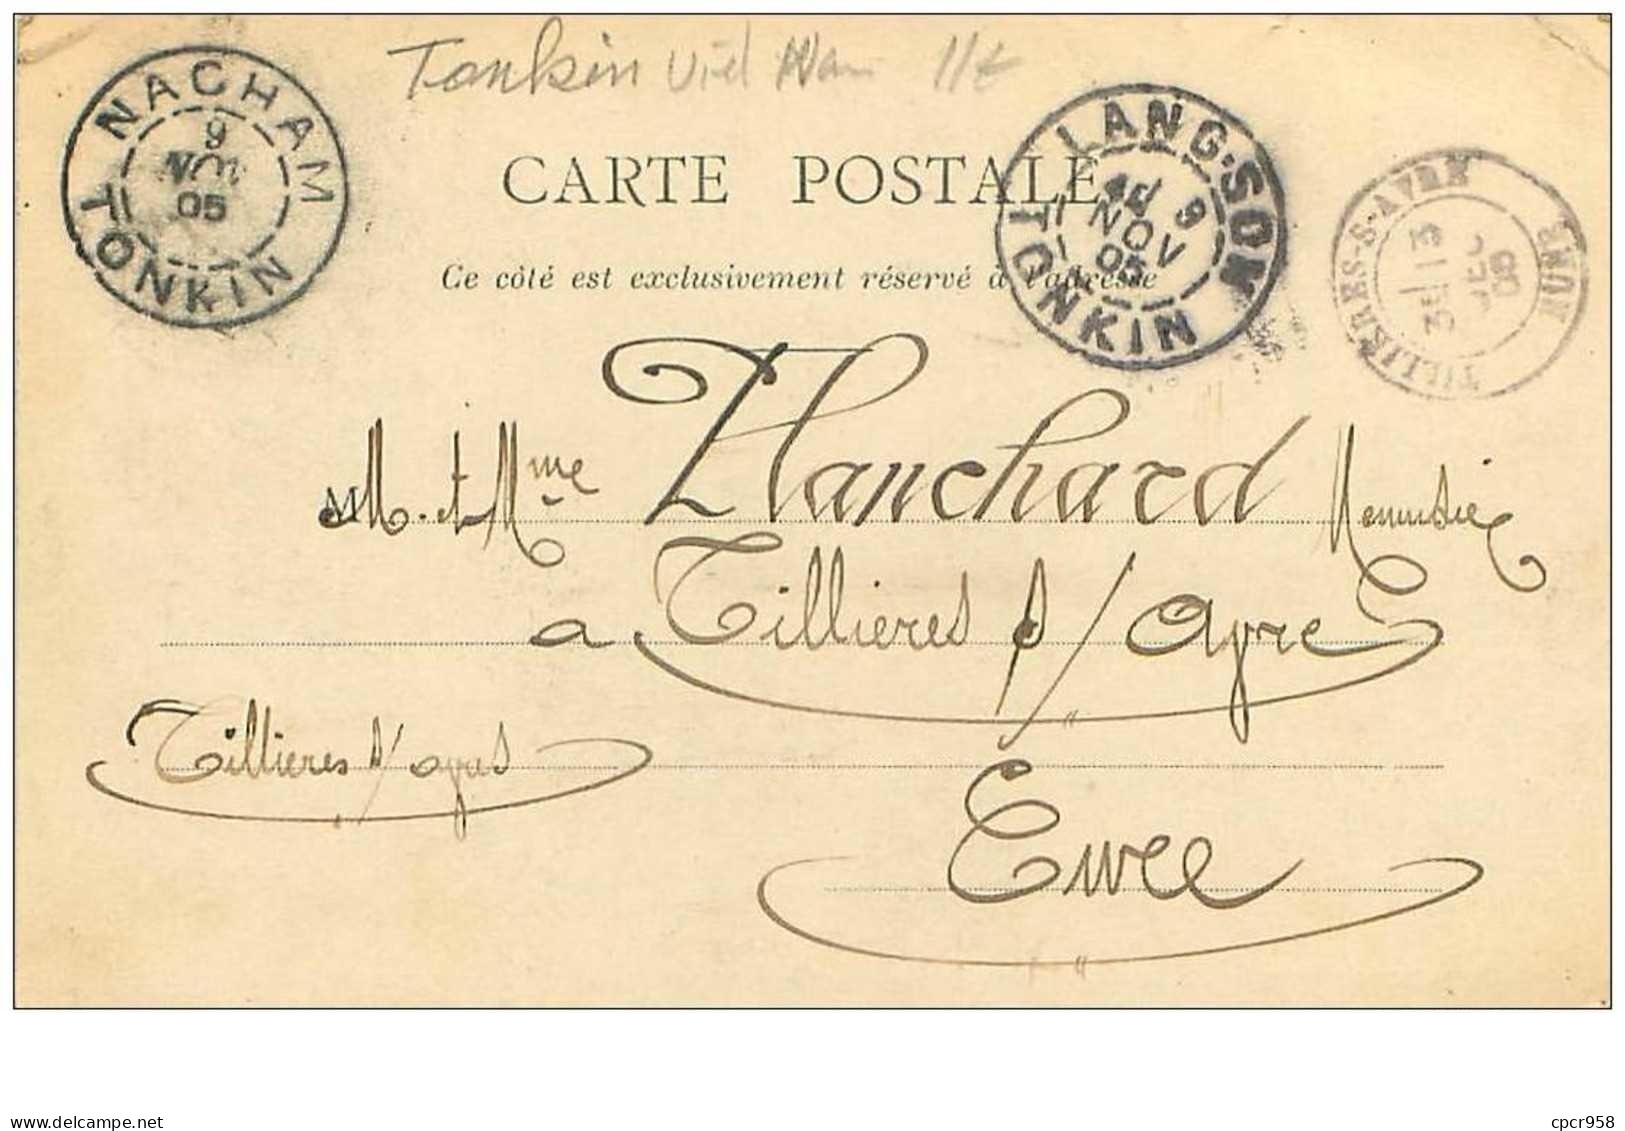 Tonkin Viêt Nam
NACHAM
9
NOV
05
TONKIN
LANG-SON
9
NOV
05
TONKIN
TILLIÈRES-S-AVRE
3E 13
DEC
05
EURE
CARTE POSTALE
Ce côté est exclusivement réservé à l'adresse
M. et Mme Blanchard Menuisier
a Tillieres s/ Avre
Tillieres s/ avre
Eure
delcampe.net
cpcr958